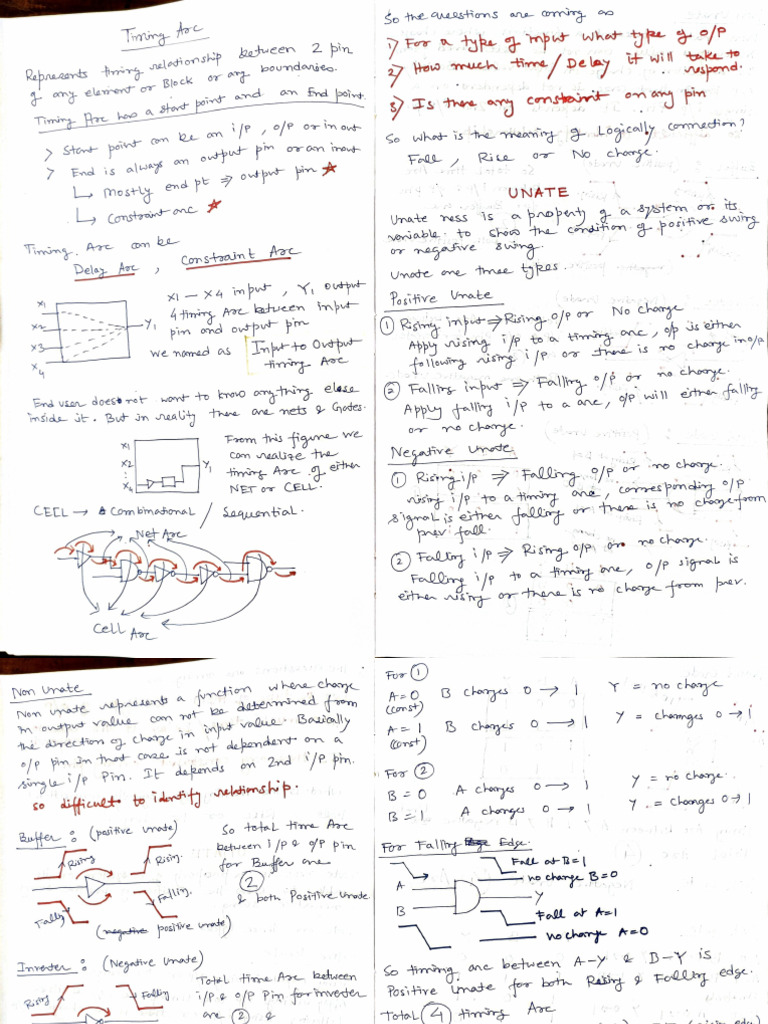 Timing Arc
Represents timing relationship between 2 pin
of any element or Block or any boundaries.
Timing Arc has a start point and an End point.
> Start point can be an i/p, o/p or in out
> End is always an output pin or an inout
↳ Mostly end pt ⇒ output pin ★
↳ Constraint arc ★
Timing Arc can be
Delay Arc, Constraint Arc
X1
X2
X3
X4
Y1
X1 — X4 input, Y1 output
4 timing Arc between input
pin and output pin
we named as Input to Output
timing Arc
End user does not want to know anything else
inside it. But in reality there are nets & Gates.
X1
X2
X4
Y1
From this figure we
can realize the
timing Arc of either
NET or CELL.
CELL → Combinational / Sequential.
Net Arc
Cell Arc
So the questions are coming as
1) For a type of input what type of o/p
2) How much time/Delay it will take to
respond.
3) Is there any constraint on any pin
So what is the meaning of Logically connection?
Fall, Rise or No change.
UNATE
Unate ness is a property of a system or its
variable to show the condition of positive swing
or negative swing.
Unate are three types.
Positive Unate
① Rising input ⇒ Rising o/p or No change
Apply rising i/p to a timing arc, o/p is either
following rising i/p or there is no change in o/p
② Falling input ⇒ Falling o/p or no change.
Apply falling i/p to a arc, o/p will either falling
or no change.
Negative Unate
① Rising i/p ⇒ Falling o/p or no change.
rising i/p to a timing arc, corresponding o/p
signal is either falling or there is no change from
prev fall.
② Falling i/p ⇒ Rising o/p or no change.
Falling i/p to a timing arc, o/p signal is
either rising or there is no change from prev.
Non Unate
Non unate represents a function where change
in output value can not be determined from
the direction of change in input value. Basically
o/p pin in that case is not dependent on a
single i/p Pin. It depends on 2nd i/p pin.
so difficult to identify relationship.
Buffer : (positive unate)
Rising
Rising
Falling
Falling
(negative positive unate)
So total time Arc
between i/p & o/p pin
for Buffer are
②
& both Positive Unate.
Inverter : (Negative Unate)
Rising
Falling
Total time Arc between
i/p & o/p Pin for inverter
are ② &
For ①
A=0 B changes 0 → 1 Y = no change
(const)
A=1 B changes 0 → 1 Y = channges 0→1
(const)
For ②
B=0 A changes 0 → 1 Y = no change.
B=1 A changes 0 → 1 Y = changes 0→1
For Falling Edge.
A
B
Y
Fall at B=1
no change B=0
Fall at A=1
no change A=0
So timing arc between A-Y & B-Y is
Positive Unate for both Rising & Falling edge.
Total ④ timing Arc